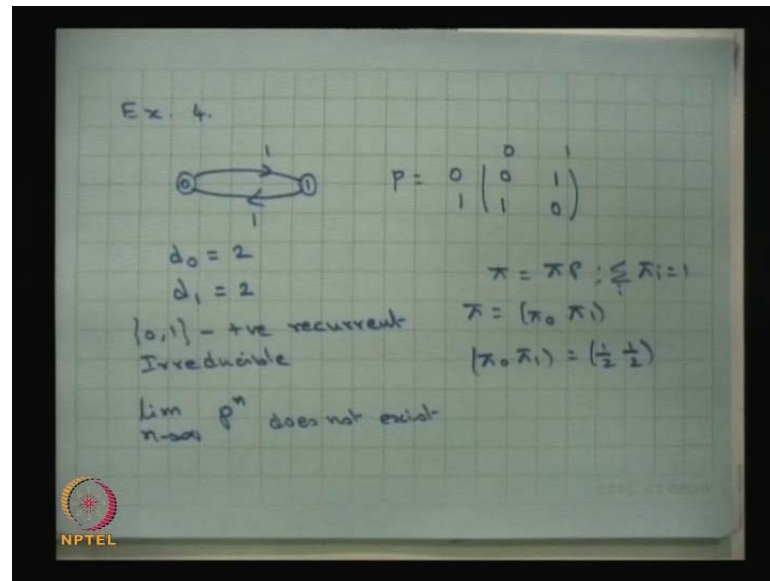 Ex. 4.
1
0 1
1
P = 0 1
0 ( 0 1
1 1 0 )
d₀ = 2
d₁ = 2
{0,1} - +ve recurrent
Irreducible
lim n→∞ Pⁿ does not exist
π = πP ; Σ_i πi = 1
π = (π₀ π₁)
(π₀ π₁) = (1/2 1/2)
NPTEL